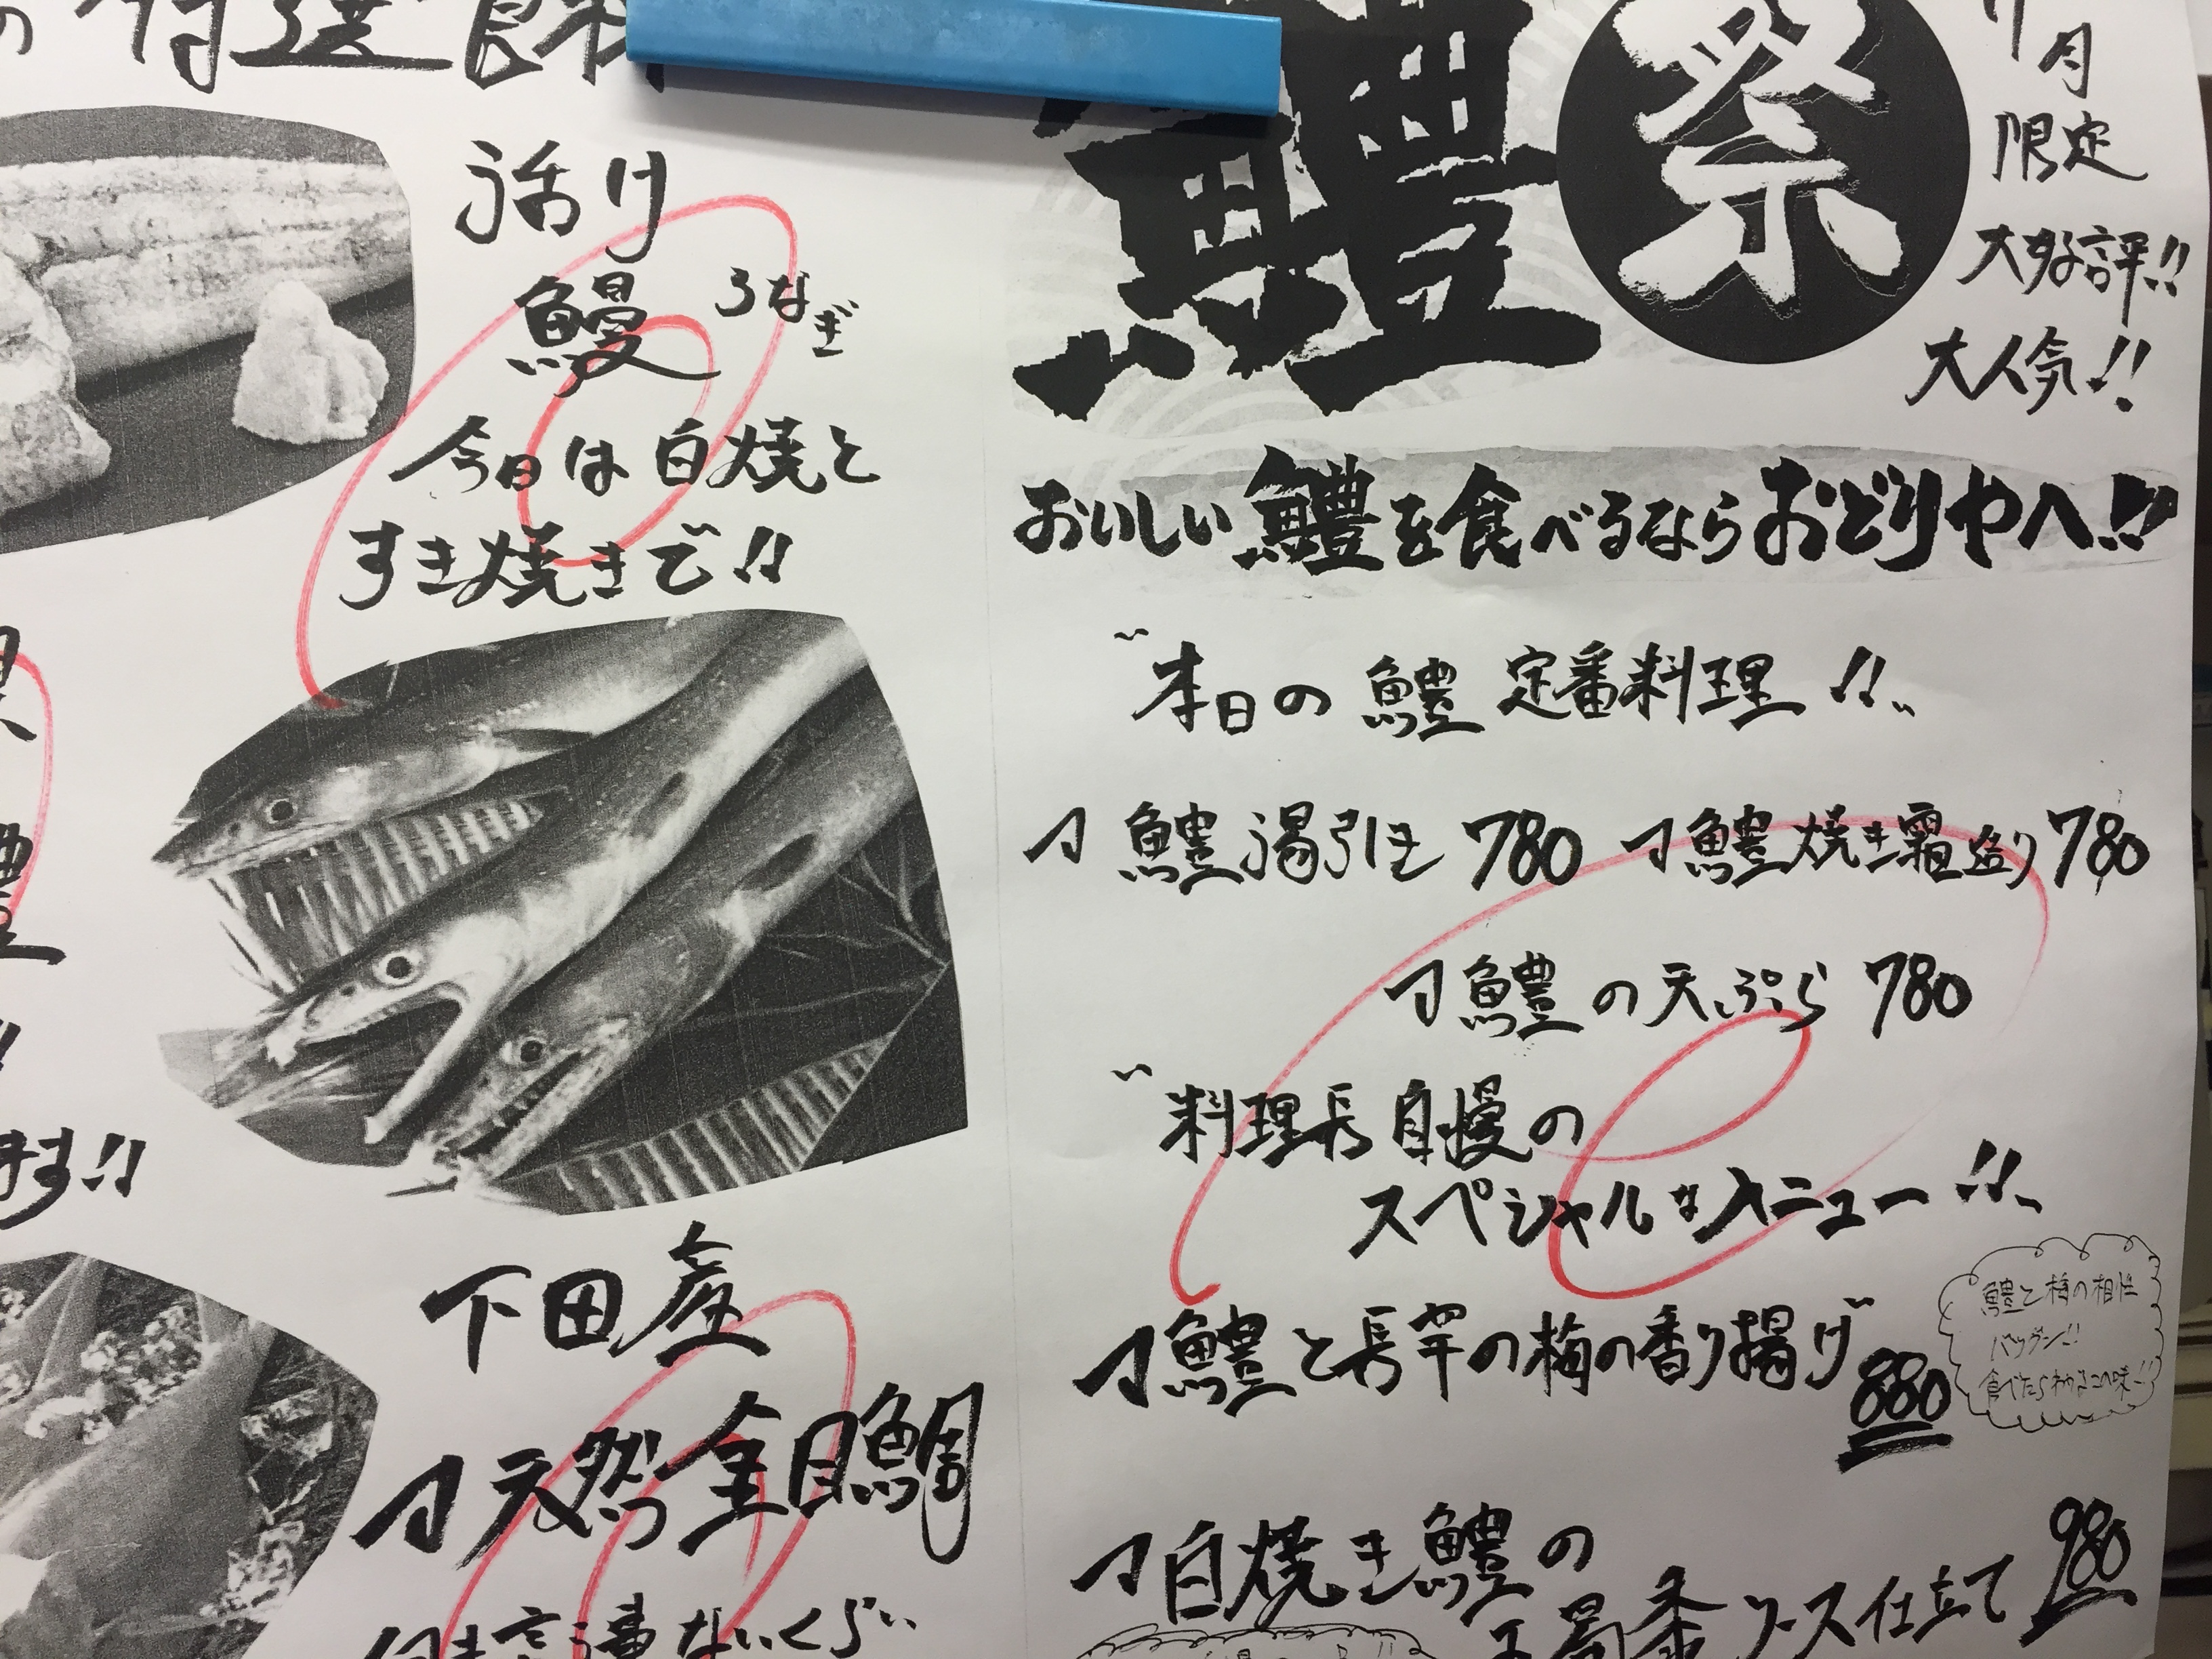 の特選食材
活け
鰻 うなぎ
今日は白焼と
すき焼きで!!
ます!!
下田産
天然金目鯛
鱧祭
月
限定
大好評!!
大人気!!
おいしい鱧を食べるならおどりやへ!!
"本日の鱧定番料理!!"
鱧湯引き 780
鱧焼き霜造り 780
鱧の天ぷら 780
"料理長自慢の
スペシャルなメニュー!!"
鱧と長芋の梅の香り揚げ 880
鱧と梅の相性
バツグン!!
白焼き鱧の
玉蜀黍ソース仕立て 980